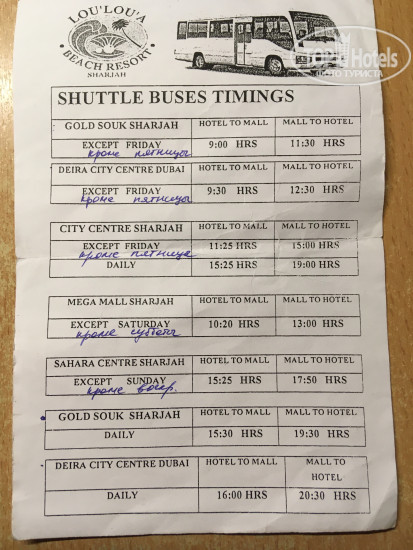 LOU'LOU'A
BEACH RESORT
SHARJAH
TopHotels
ФОТО ТУРИСТА
SHUTTLE BUSES TIMINGS
GOLD SOUK SHARJAH HOTEL TO MALL MALL TO HOTEL
EXCEPT FRIDAY 9:00 HRS 11:30 HRS
кроме пятницы
DEIRA CITY CENTRE DUBAI HOTEL TO MALL MALL TO HOTEL
EXCEPT FRIDAY 9:30 HRS 12:30 HRS
кроме пятницы
CITY CENTRE SHARJAH HOTEL TO MALL MALL TO HOTEL
EXCEPT FRIDAY 11:25 HRS 15:00 HRS
кроме пятнице
DAILY 15:25 HRS 19:00 HRS
MEGA MALL SHARJAH HOTEL TO MALL MALL TO HOTEL
EXCEPT SATURDAY 10:20 HRS 13:00 HRS
кроме субботы
SAHARA CENTRE SHARJAH HOTEL TO MALL MALL TO HOTEL
EXCEPT SUNDAY 15:25 HRS 17:50 HRS
кроме воскр.
GOLD SOUK SHARJAH HOTEL TO MALL MALL TO HOTEL
DAILY 15:30 HRS 19:30 HRS
DEIRA CITY CENTRE DUBAI HOTEL TO MALL MALL TO
HOTEL
DAILY 16:00 HRS 20:30 HRS